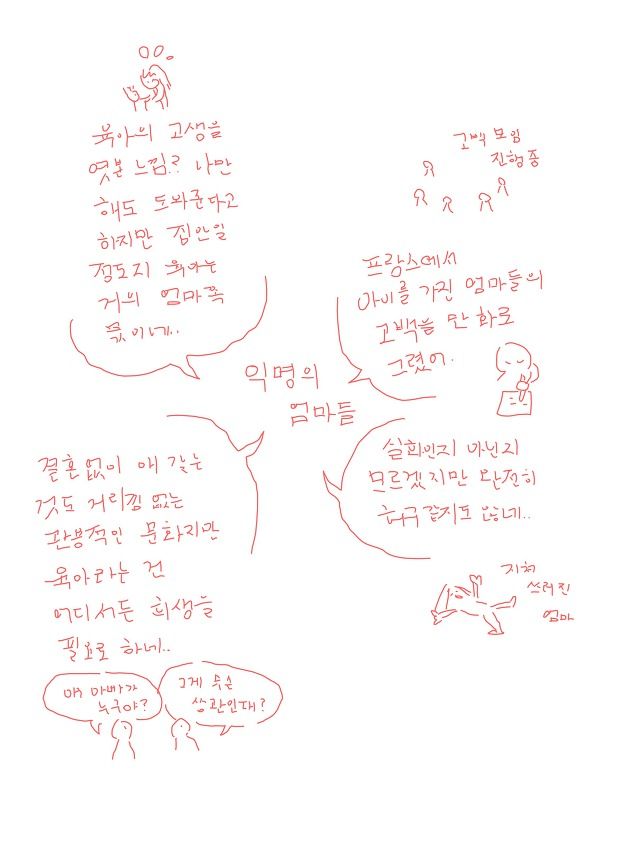 육아의 고생을
엿본 느낌?? 나만
해도 도와준다고
하지만 집안일
정도지 육아는
거의 엄마쪽
몫이네..
고백 모임
진행중
프랑스에서
아이를 가진 엄마들의
고백을 만화로
그렸어.
익명의
엄마들
결혼없이 애 갖는
것도 거리낌 없는
관용적인 문화지만
육아라는 건
어디서든 희생을
필요로 하네..
애 아빠가
누구야?
그게 무슨
상관인데?
실화인지 아닌지
모르겠지만 완전히
허구 같지도 않네..
지쳐
쓰러진
엄마